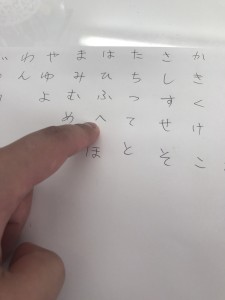 かきくけこ
さしすせそ
たちつてと
はひふへほ
まみむめ
やゆよ
わん